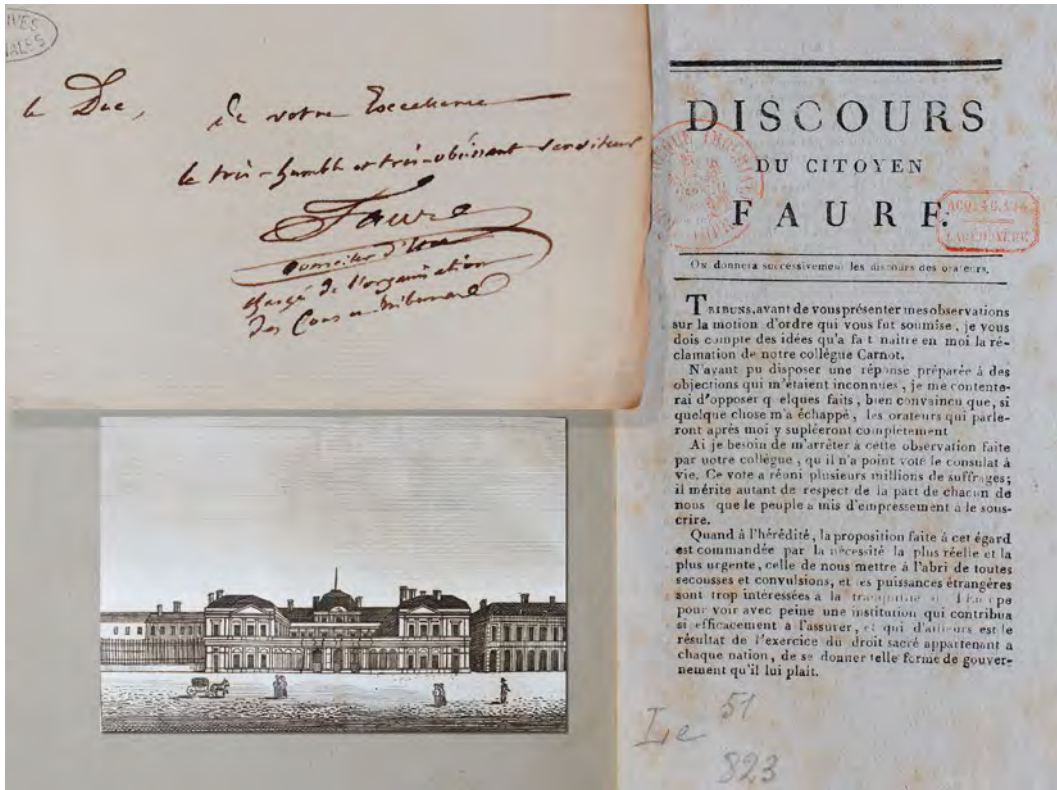 le Duc,
De votre Excellence
le très-humble et très-obéissant serviteur
Faure
Conseiller d'Etat
chargé de l'organisation
des Cours et Tribunaux
DISCOURS
DU CITOYEN
FAURE.
On donnera successivement les discours des orateurs.
TRIBUNS, avant de vous présenter mes observations
sur la motion d'ordre qui vous fut soumise, je vous
dois compte des idées qu'a fa t naître en moi la ré-
clamation de notre collègue Carnot.
N'ayant pu disposer une réponse préparée à des
objections qui m'étaient inconnues, je me contente-
rai d'opposer q elques faits, bien convaincu que, si
quelque chose m'a échappé, les orateurs qui parle-
ront après moi y supléeront complètement
Ai je besoin de m'arrêter à cette observation faite
par notre collègue, qu il n'a point voté le consulat à
vie. Ce vote a réuni plusieurs millions de suffrages;
il mérite autant de respect de la part de chacun de
nous que le peuple a mis d'empressement à le sous-
crire.
Quand à l'hérédité, la proposition faite à cet égard
est commandée par la nécessité la plus réelle et la
plus urgente, celle de nous mettre à l'abri de toutes
secousses et convulsions, et les puissances étrangères
sont trop intéressées a la
pour voir avec peine une institution qui contribua
si efficacement a l'assurer, et qui d'ailleurs est le
résultat de l'exercice du droit sacré appartenant a
chaque nation, de se donner telle forme de gouver-
nement qu'il lui plait.
51
Le
823